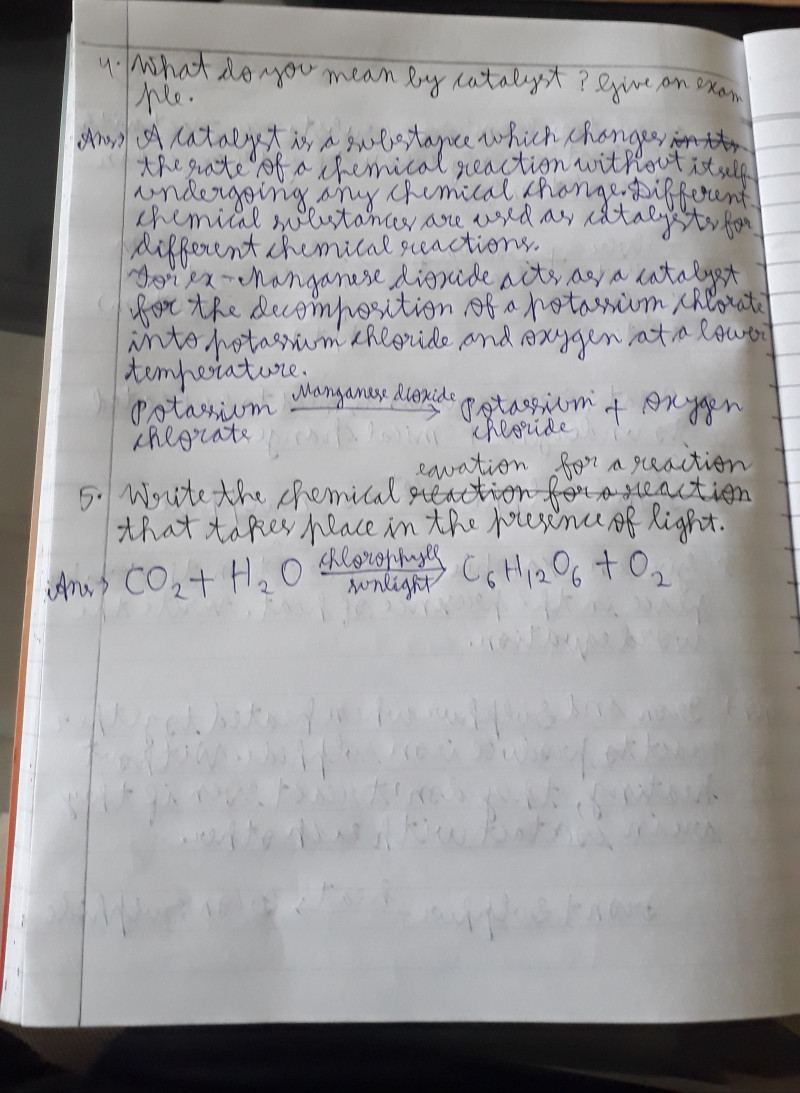 4. What do you mean by catalyst? Give an exam
ple.
Ans> A catalyst is a substance which changes in its
the rate of a chemical reaction without itself
undergoing any chemical change. Different
chemical substances are used as catalysts for
different chemical reactions.
For ex - Manganese dioxide acts as a catalyst
for the decomposition of a potassium chlorate
into potassium chloride and oxygen at a lower
temperature.
Potassium chlorate Manganese dioxide → Potassium chloride + Oxygen
equation for a reaction
5. Write the chemical reaction for a reaction
that takes place in the presence of light.
Ans> CO₂ + H₂O chlorophyll sunlight → C₆H₁₂O₆ + O₂